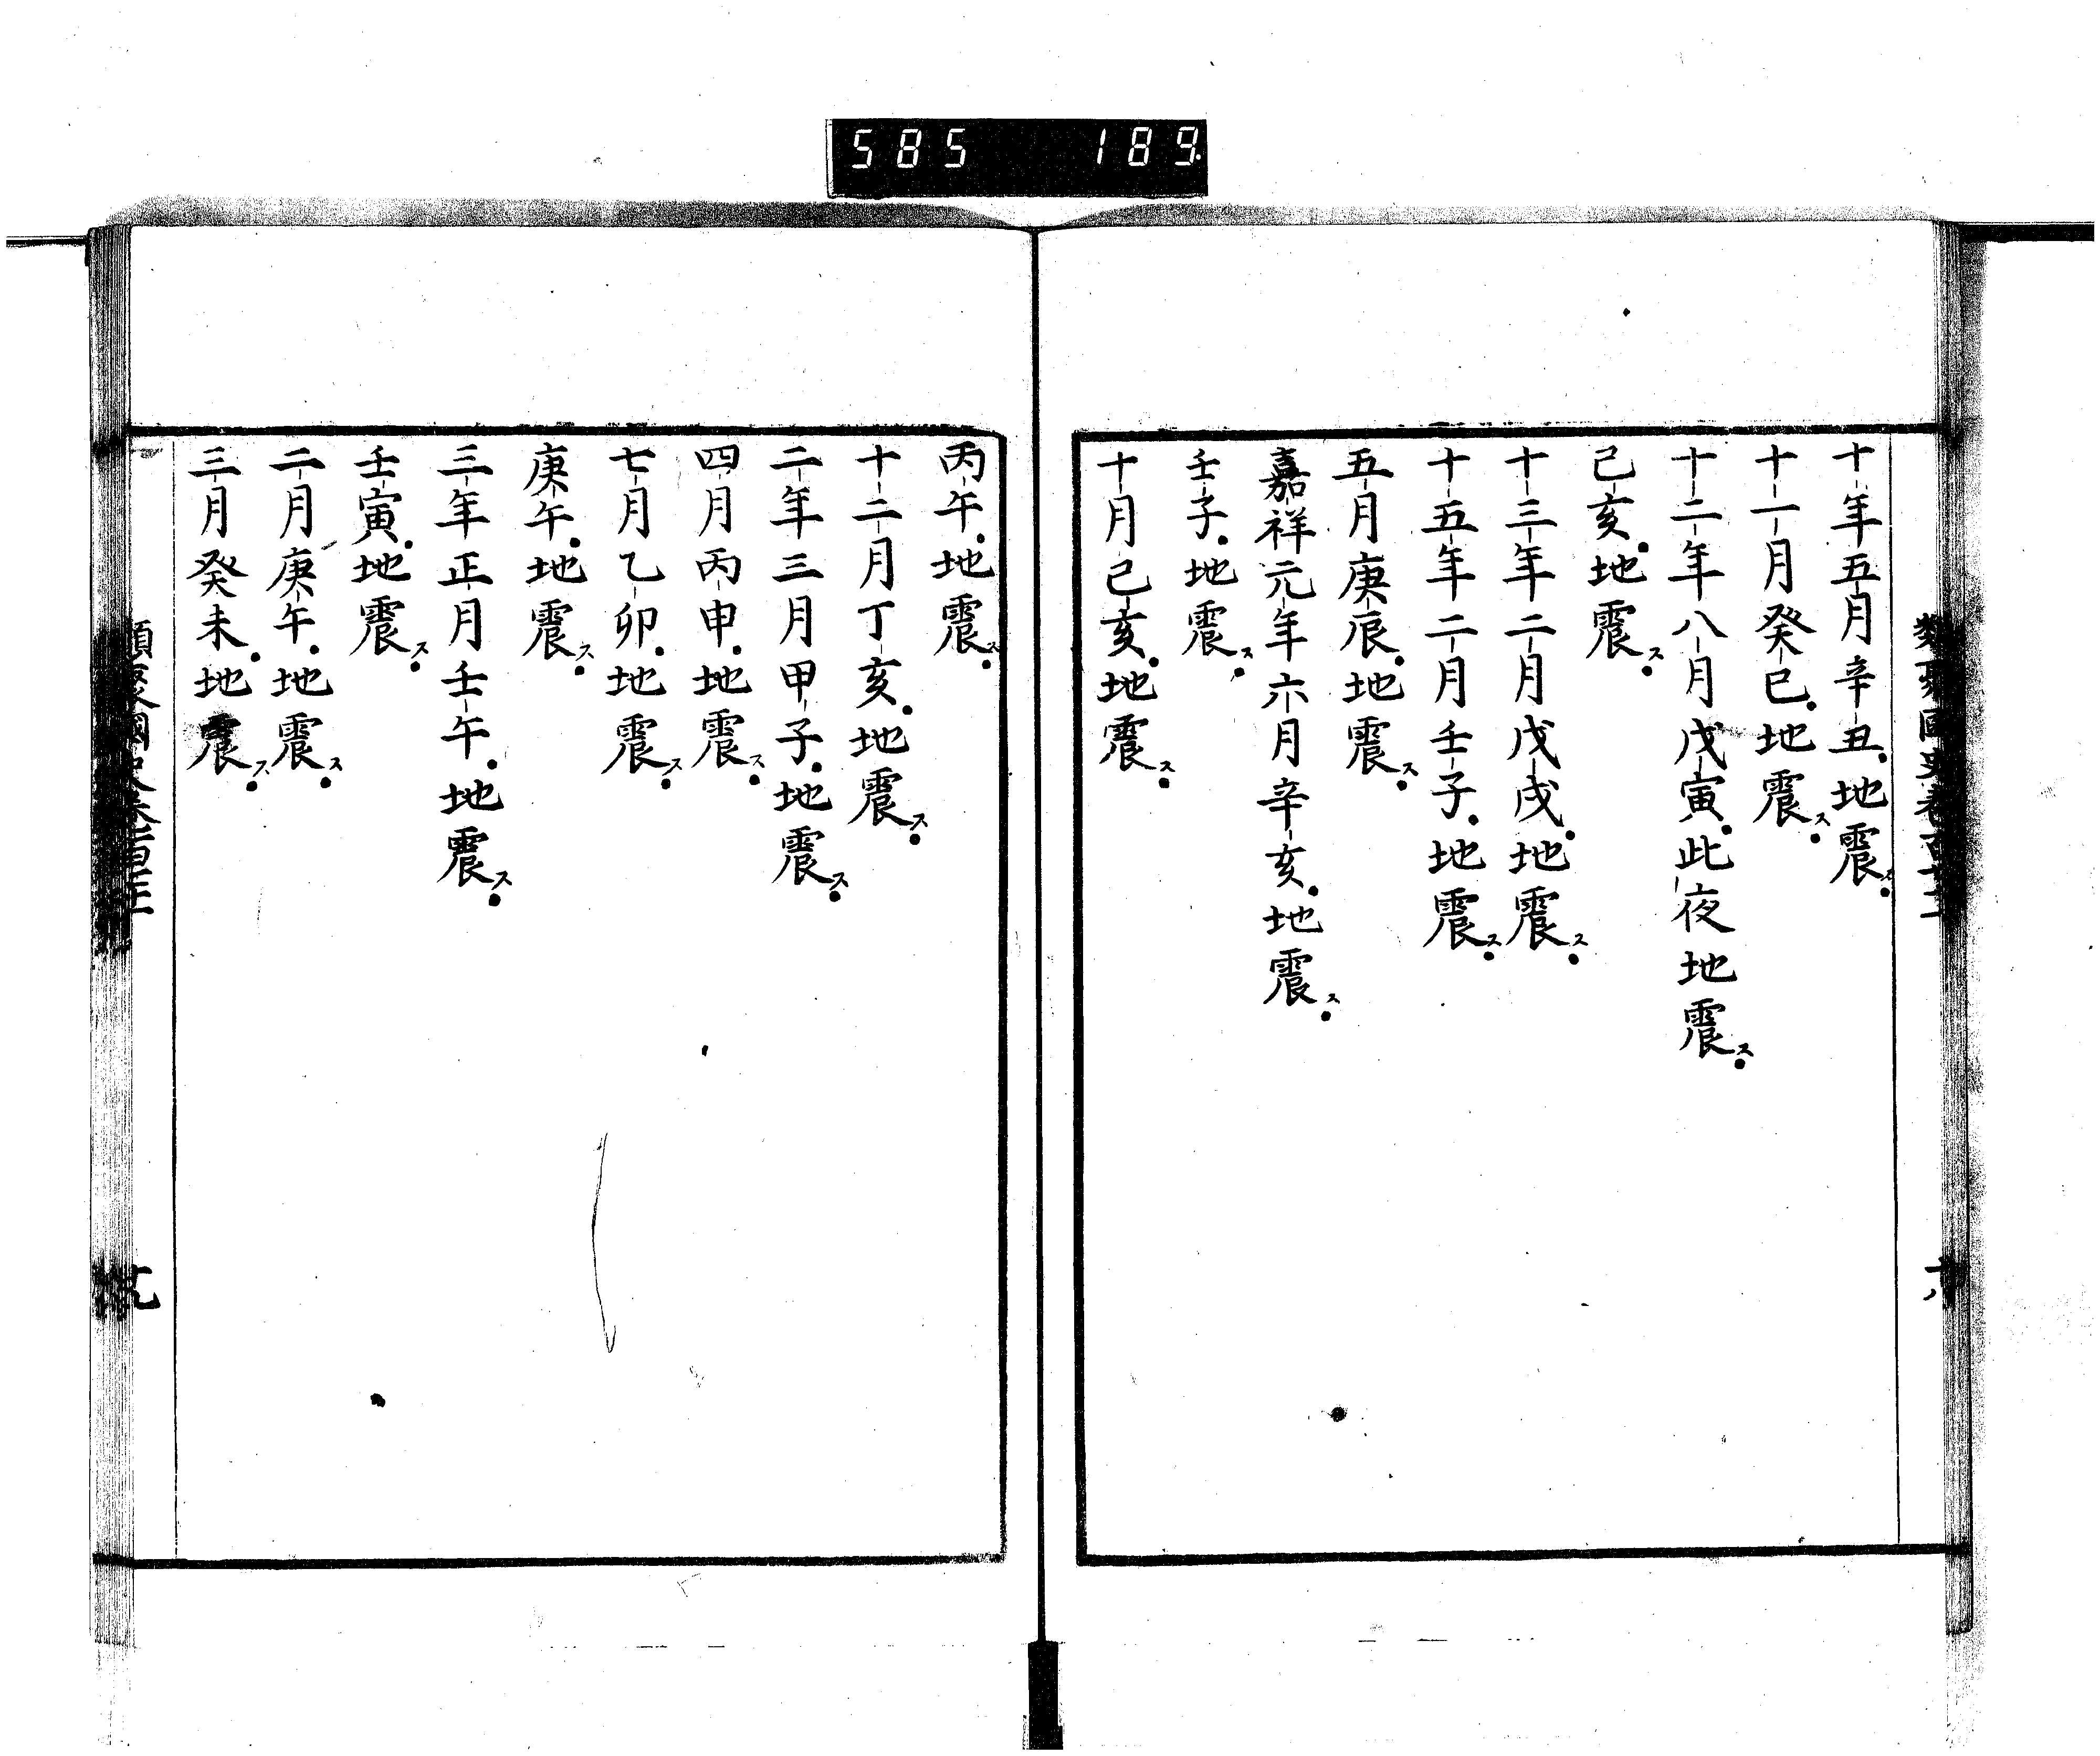 585 189
十年五月辛丑地震ス
十一月癸巳地震ス
十二年八月戊寅此夜地震ス
己亥地震ス
十三年二月戊戌地震ス
十五年二月壬子地震ス
五月庚辰地震ス
嘉祥元年六月辛亥地震ス
壬子地震ス
十月己亥地震ス
丙午地震ス
十二月丁亥地震ス
二年三月甲子地震ス
四月丙申地震ス
七月乙卯地震ス
庚午地震ス
三年正月壬午地震ス
壬寅地震ス
二月庚午地震ス
三月癸未地震ス